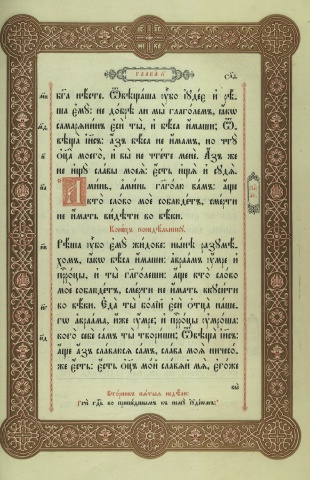 бг҃а нѣсте. Ѿвѣщаша ᲂу҆̀бо і҆ꙋде́є и҆ рѣ́-
ша є҆мꙋ̀: не до́брѣ ли мы̀ глаго́лемъ, ꙗ҆́кѡ
самарѧни́нъ є҆сѝ ты̀, и҆ бѣ́са и҆́маши; Ѿ-
вѣща̀ і҆и҃съ: а҆́зъ бѣ́са не и҆́мамъ, но чтꙋ̀
ѻ҆ц҃а̀ моего̀, и҆ вы̀ не чте́те менє̀. А҆́зъ же
не и҆щꙋ̀ сла́вы моеѧ̀: є҆́сть и҆щѧ̀ и҆ сꙋдѧ̀.
А҆ми́нь, а҆ми́нь гл҃го́лю ва́мъ: а҆́ще
кто̀ сло́во моѐ соблюде́тъ, сме́рти
не и҆́мать ви́дѣти во вѣ́ки.
Коне́цъ понедѣ́льникꙋ.
Рѣ́ша ᲂу҆̀бо є҆мꙋ̀ жи́дове: нн҃ѣ разꙋмѣ́-
хомъ, ꙗ҆́кѡ бѣ́са и҆́маши: а҆враа́мъ ᲂу҆́мре и҆
прⷪ҇ро́цы, и҆ ты̀ глаго́леши: а҆́ще кто̀ сло́во
моѐ соблюде́тъ, сме́рти не и҆́мать вкꙋси́ти
во вѣ́ки. Є҆да̀ ты̀ бо́лїй є҆сѝ ѻ҆тца̀ на́ше-
гѡ а҆враа́ма, и҆́же ᲂу҆́мре; и҆ прⷪ҇ро́цы ᲂу҆мро́ша:
кого̀ себѐ са́мъ ты̀ твори́ши; Ѿвѣща̀ і҆и҃съ:
а҆́ще а҆́зъ сла́влюсѧ са́мъ, сла́ва моѧ̀ ничесо́-
же є҆́сть: є҆́сть ѻ҆ц҃ъ мо́й сла́вѧй мѧ̀, є҆го́же
вы̀
Вто́рникъ пѧ́тыѧ недѣ́ли:
Речѐ гдⷭ҇ь ко прише́дшымъ къ немꙋ̀ і҆ꙋде́ѡмъ: